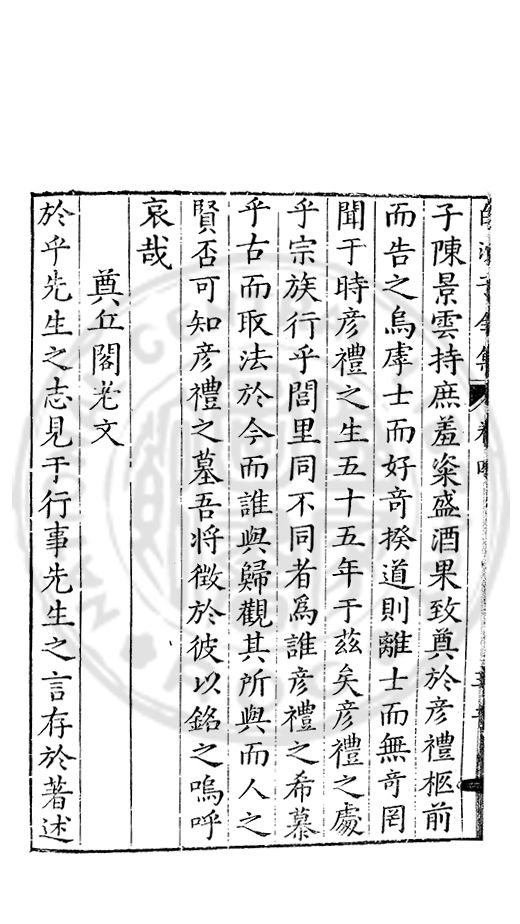 子陳景雲持庶羞粢盛酒果致奠於彦禮柩前
而告之烏虖士而好竒揆道則離士而無竒罔
聞于時彦禮之生五十五年于茲矣彦禮之處
乎宗族行乎閭里同不同者爲誰彦禮之希慕
乎古而取法於今而誰與歸觀其所與而人之
賢否可知彦禮之墓吾將徵於彼以銘之嗚呼
哀哉
奠丘閣老文
於乎先生之志見于行事先生之言存於著述